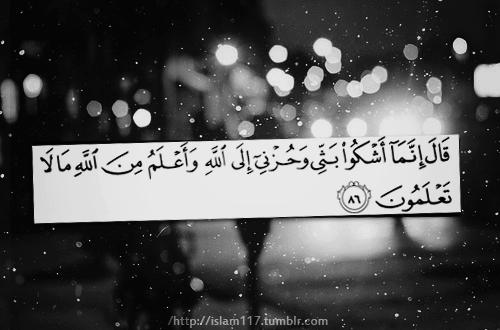 قَالَ إِنَّمَآ أَشْكُوا۟ بَثِّى وَحُزْنِىٓ إِلَى ٱللَّهِ وَأَعْلَمُ مِنَ ٱللَّهِ مَا لَا
تَعْلَمُونَ ٨٦
/http://islam117.tumblr.com